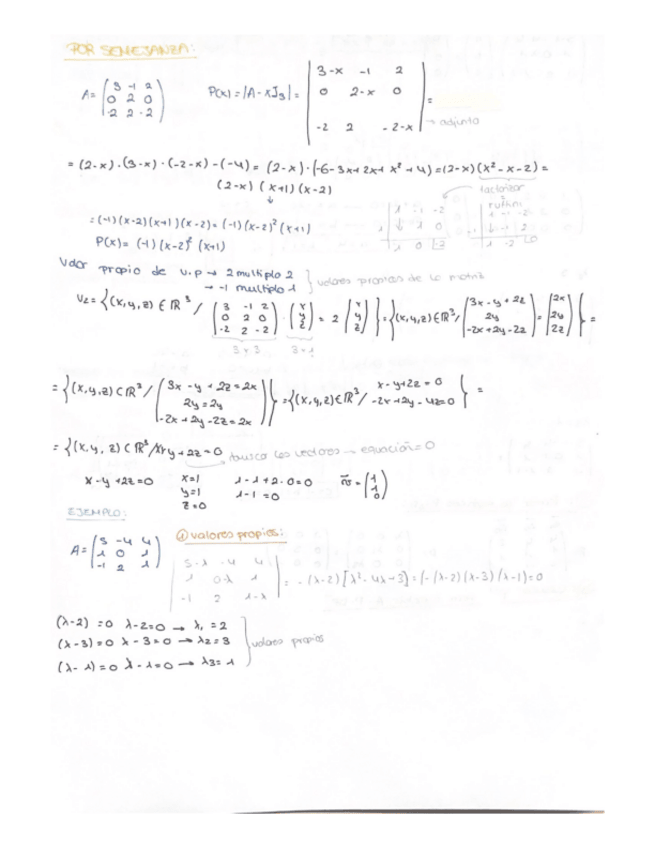 POR SEMEJANZA:
A= (3 -1 2 / 0 2 0 / -2 2 -2) P(x)=|A-xI₃|= |3-x -1 2 / 0 2-x 0 / -2 2 -2-x| =
→ adjunta
= (2-x)·(3-x)·(-2-x)-(-4)= (2-x)·(-6-3x+2x+x²+4)=(2-x)(x²-x-2)=
(2-x) (x+1)(x-2)
factorizar
ruffini
1 -1 -2
1 0
=(-1)(x-2)(x+1)(x-2)=(-1)(x-2)²(x+1)
P(x)= (-1)(x-2)²(x+1)
Valor propio de v.p → 2 multiplo 2
→ -1 multiplo 1 } valores propios de la matriz
V₂={(x,y,z)∈ℝ³/ (3 -1 2 / 0 2 0 / -2 2 -2)·(x / y / z) = 2 (x / y / z)}={(x,y,z)∈ℝ³/ (3x-y+2z / 2y / -2x+2y-2z)=(2x / 2y / 2z)}=
3×3 3×1
={(x,y,z)⊂ℝ³/ (3x-y+2z=2x / 2y=2y / -2x+2y-2z=2x)}={(x,y,z)∈ℝ³/ x-y+2z=0 / -2x+2y-4z=0} =
={(x,y,z)⊂ℝ³/ +2z=0 → busco los vectores → ecuación=0
x-y+2z=0 x=1 1-1+2·0=0 v=(1 / 1 / 0)
y=1 1-1=0
z=0
EJEMPLO:
A=(5 -4 4 / 1 0 1 / -1 2 1) ① valores propios:
|5-λ -4 4 / 1 0λ 1 / -1 2 1-λ| = -(λ-2)[λ²-4λ+3]=(-(λ-2)(λ-3)(λ-1)=0
(λ-2)=0 λ-2=0 → λ₁=2
(λ-3)=0 λ-3=0 → λ₂=3 } valores propios
(λ-1)=0 λ-1=0 → λ₃=1